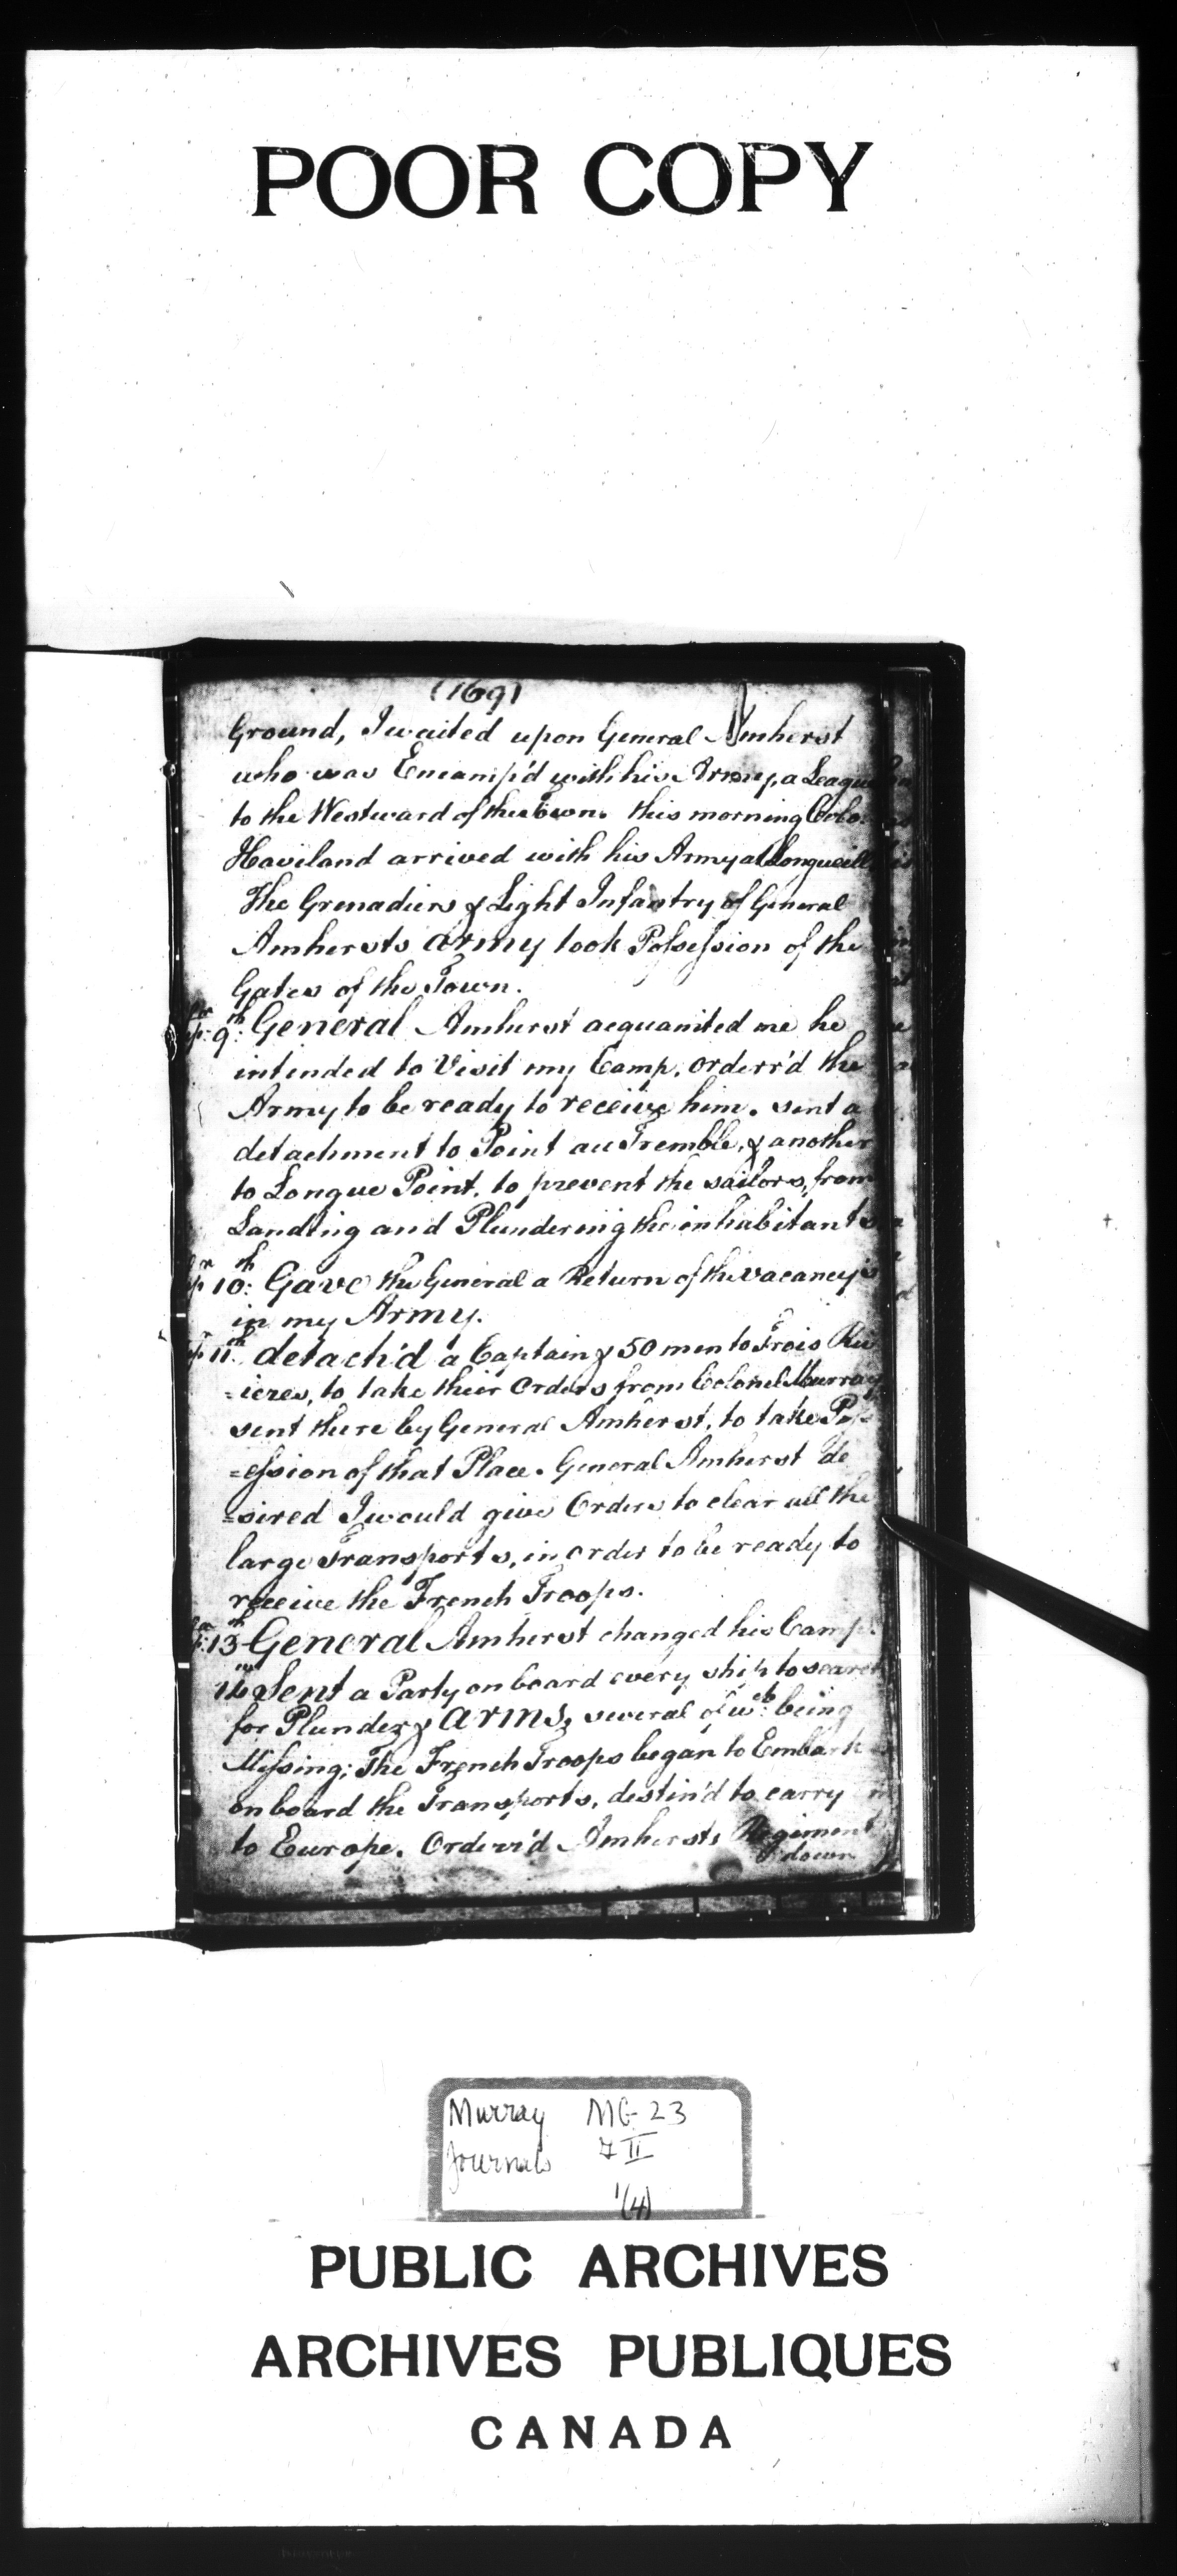 POOR COPY
(169)
Ground, I waited upon General Amherst
who was Encamp'd with his Army, a League
to the Westward of the town. this morning Colo
Haviland arrived with his Army at Longueill
The Grenadiers & Light Infantry of General
Amhersts army took Possession of the
Gates of the Town.
9th: General Amherst acquanited me he
intended to Visit my Camp. orderr'd the
Army to be ready to receive him. sent a
detachment to Point au Tremble, & another
to Longue Point. to prevent the sailors, from
Landing and Plundering the inhabitants
10th: Gave the General a Return of the vacancys
in my Army.
11th. detach'd a Captain & 50 men to Trois Riv
=ieres, to take their Orders from Colonel Murray
sent there by General Amherst, to take Poss
=ession of that Place. General Amherst de
=sired I would give Orders to clear all the
large Transports, in order to be ready to
receive the French Troops.
13th General Amherst changed his Camp.
Sent a Party on board every ship to search
for Plunder & arms, several of wch. being
Missing; The French Troops began to Embark
on board the Transports, destin'd to carry
to Europe. Order'd Amhersts Regiment
down
Murray MG 23
Journals 7 II
1(4)
PUBLIC ARCHIVES
ARCHIVES PUBLIQUES
CANADA